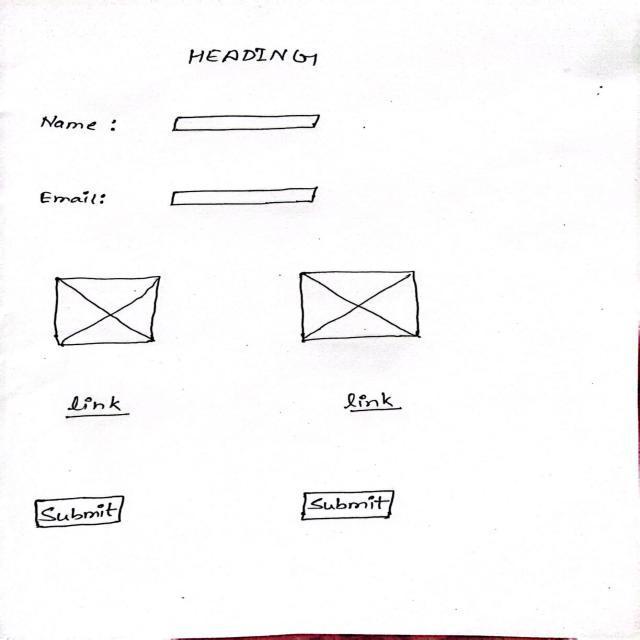 HEADING
Name :
Email:
link link
Submit Submit